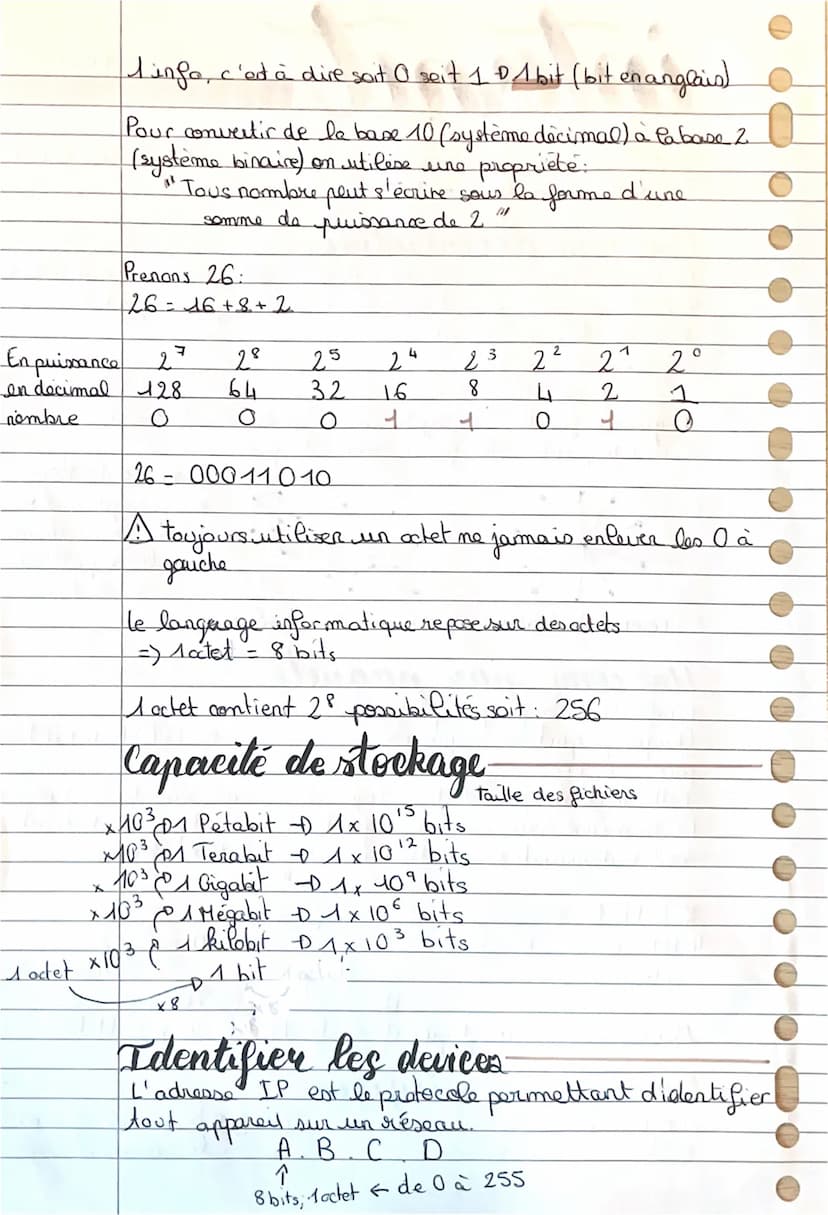 1 info, c'est à dire soit 0 soit 1 → 1 bit (bit en anglais)
Pour convertir de la base 10 (système décimal) à la base 2
(système binaire) on utilise une propriété:
"Tous nombre peut s'écrire sous la forme d'une
somme de puissance de 2"
Prenons 26:
26 = 16 + 8 + 2
En puissance 2⁷ 2⁸ 2⁵ 2⁴ 2³ 2² 2¹ 2⁰
en décimal 128 64 32 16 8 4 2 1
nombre 0 0 0 1 1 0 1 0
26 = 00011010
⚠ toujours utiliser un octet ne jamais enlever les 0 à
gauche
le language informatique repose sur des octets
=> 1 octet = 8 bits
1 octet contient 2⁸ possibilités soit : 256
Capacité de stockage
taille des fichiers
×10³ → 1 Pétabit → 1 × 10¹⁵ bits
×10³ → 1 Terabit → 1 × 10¹² bits
×10³ → 1 Gigabit → 1 × 10⁹ bits
×10³ → 1 Mégabit → 1 × 10⁶ bits
×10³ 1 kilobit → 1 × 10³ bits
1 octet → 1 bit
×8
Identifier les devices
L'adresse IP est le protocole permettant d'identifier
tout appareil sur un réseau.
A . B . C . D
↑
8 bits, 1 octet ← de 0 à 255